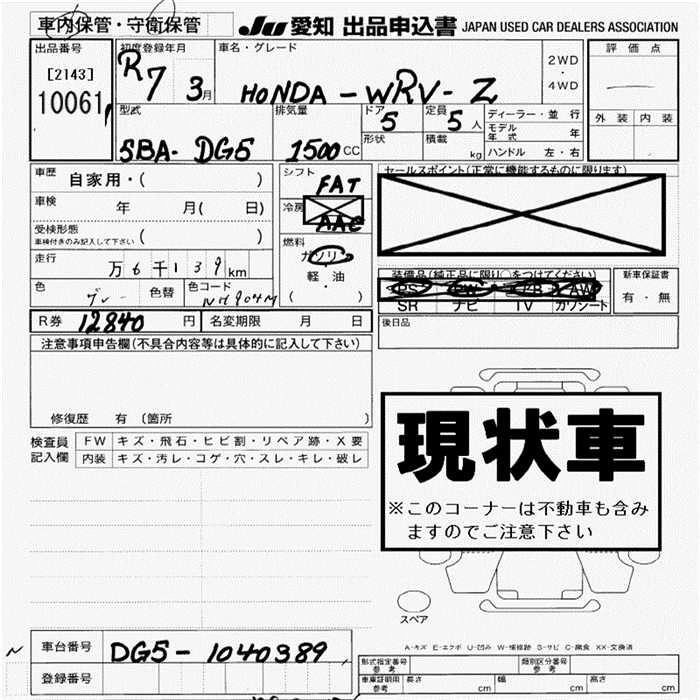 車内保管・守衛保管
JU 愛知 出品申込書 JAPAN USED CAR DEALERS ASSOCIATION
出品番号 初度登録年月 車名・グレード 2WD・4WD 評価点
[2143]
10061
R7 3月 HONDA - WRV - Z
型式 排気量 ドア 定員 ディーラー・並行 外装 内装
5 5人 モデル年式 年
形状 積載 kg ハンドル 左・右
5BA- DG5 1500cc
車歴 自家用・( ) シフト FAT セールスポイント(正常に機能するものに限ります)
車検 年 月( 日) 冷房 AAC
受検形態
車検付きのみ記入して下さい ( )
燃料 ガソリン
走行 万6千139km 軽・油 装備品(純正品に限り○をつけてください) 新車保証書
色 グレー 色替 色コード NH904M ( ) PS PW AB AW 有・無
SR ナビ TV カワシート
R券 12840円 名変期限 月 日 後日品
注意事項申告欄(不具合内容等は具体的に記入して下さい)
現状車
修復歴 有 〔箇所 〕
検査員記入欄 FW キズ・飛石・ヒビ割・リペア跡・X要
内装 キズ・汚レ・コゲ・穴・スレ・キレ・破レ
※このコーナーは不動車も含み
ますのでご注意下さい
スペア
車台番号 DG5-1040389
A-キズ E-エクボ U-凹み W-補修跡 S-サビ C-腐食 XX-交換済
登録番号
形式指定番号 参考 類別区分番号 参考
車庫証明用 参考 長さ cm 幅 cm 高さ cm